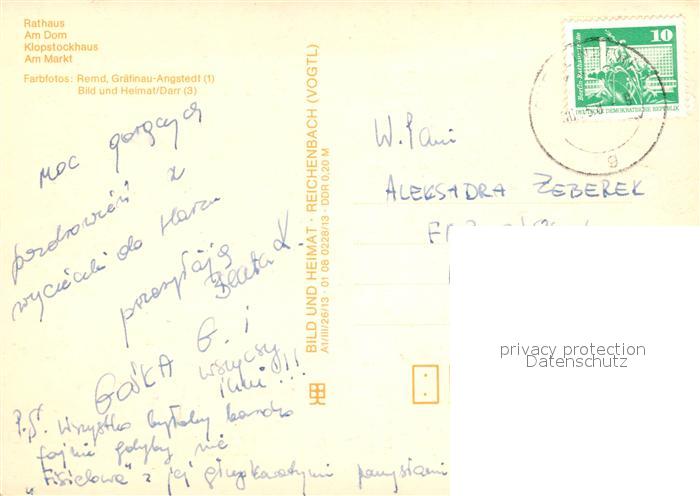 Rathaus
Am Dom
Klopstockhaus
Am Markt
Farbfotos: Remd, Gräfinau-Angstedt (1)
Bild und Heimat/Darr (3)
Moc gorących
pozdrowień z
wycieczki do Harzu
przesyłają
Beata K.
GOŚKA G. i
wszyscy
inni!!!
P.S. Wszystko byłoby bardzo
fajnie gdyby nie
z jej pomysłami
BILD UND HEIMAT · REICHENBACH (VOGTL)
A1/III/26/13 · 01 08 0228/13 · DDR 0,20 M
10
Berlin Rathausstraße
DEUTSCHE DEMOKRATISCHE REPUBLIK
g
W.Pani
ALEKSADRA ZEBEREK
privacy protection
Datenschutz